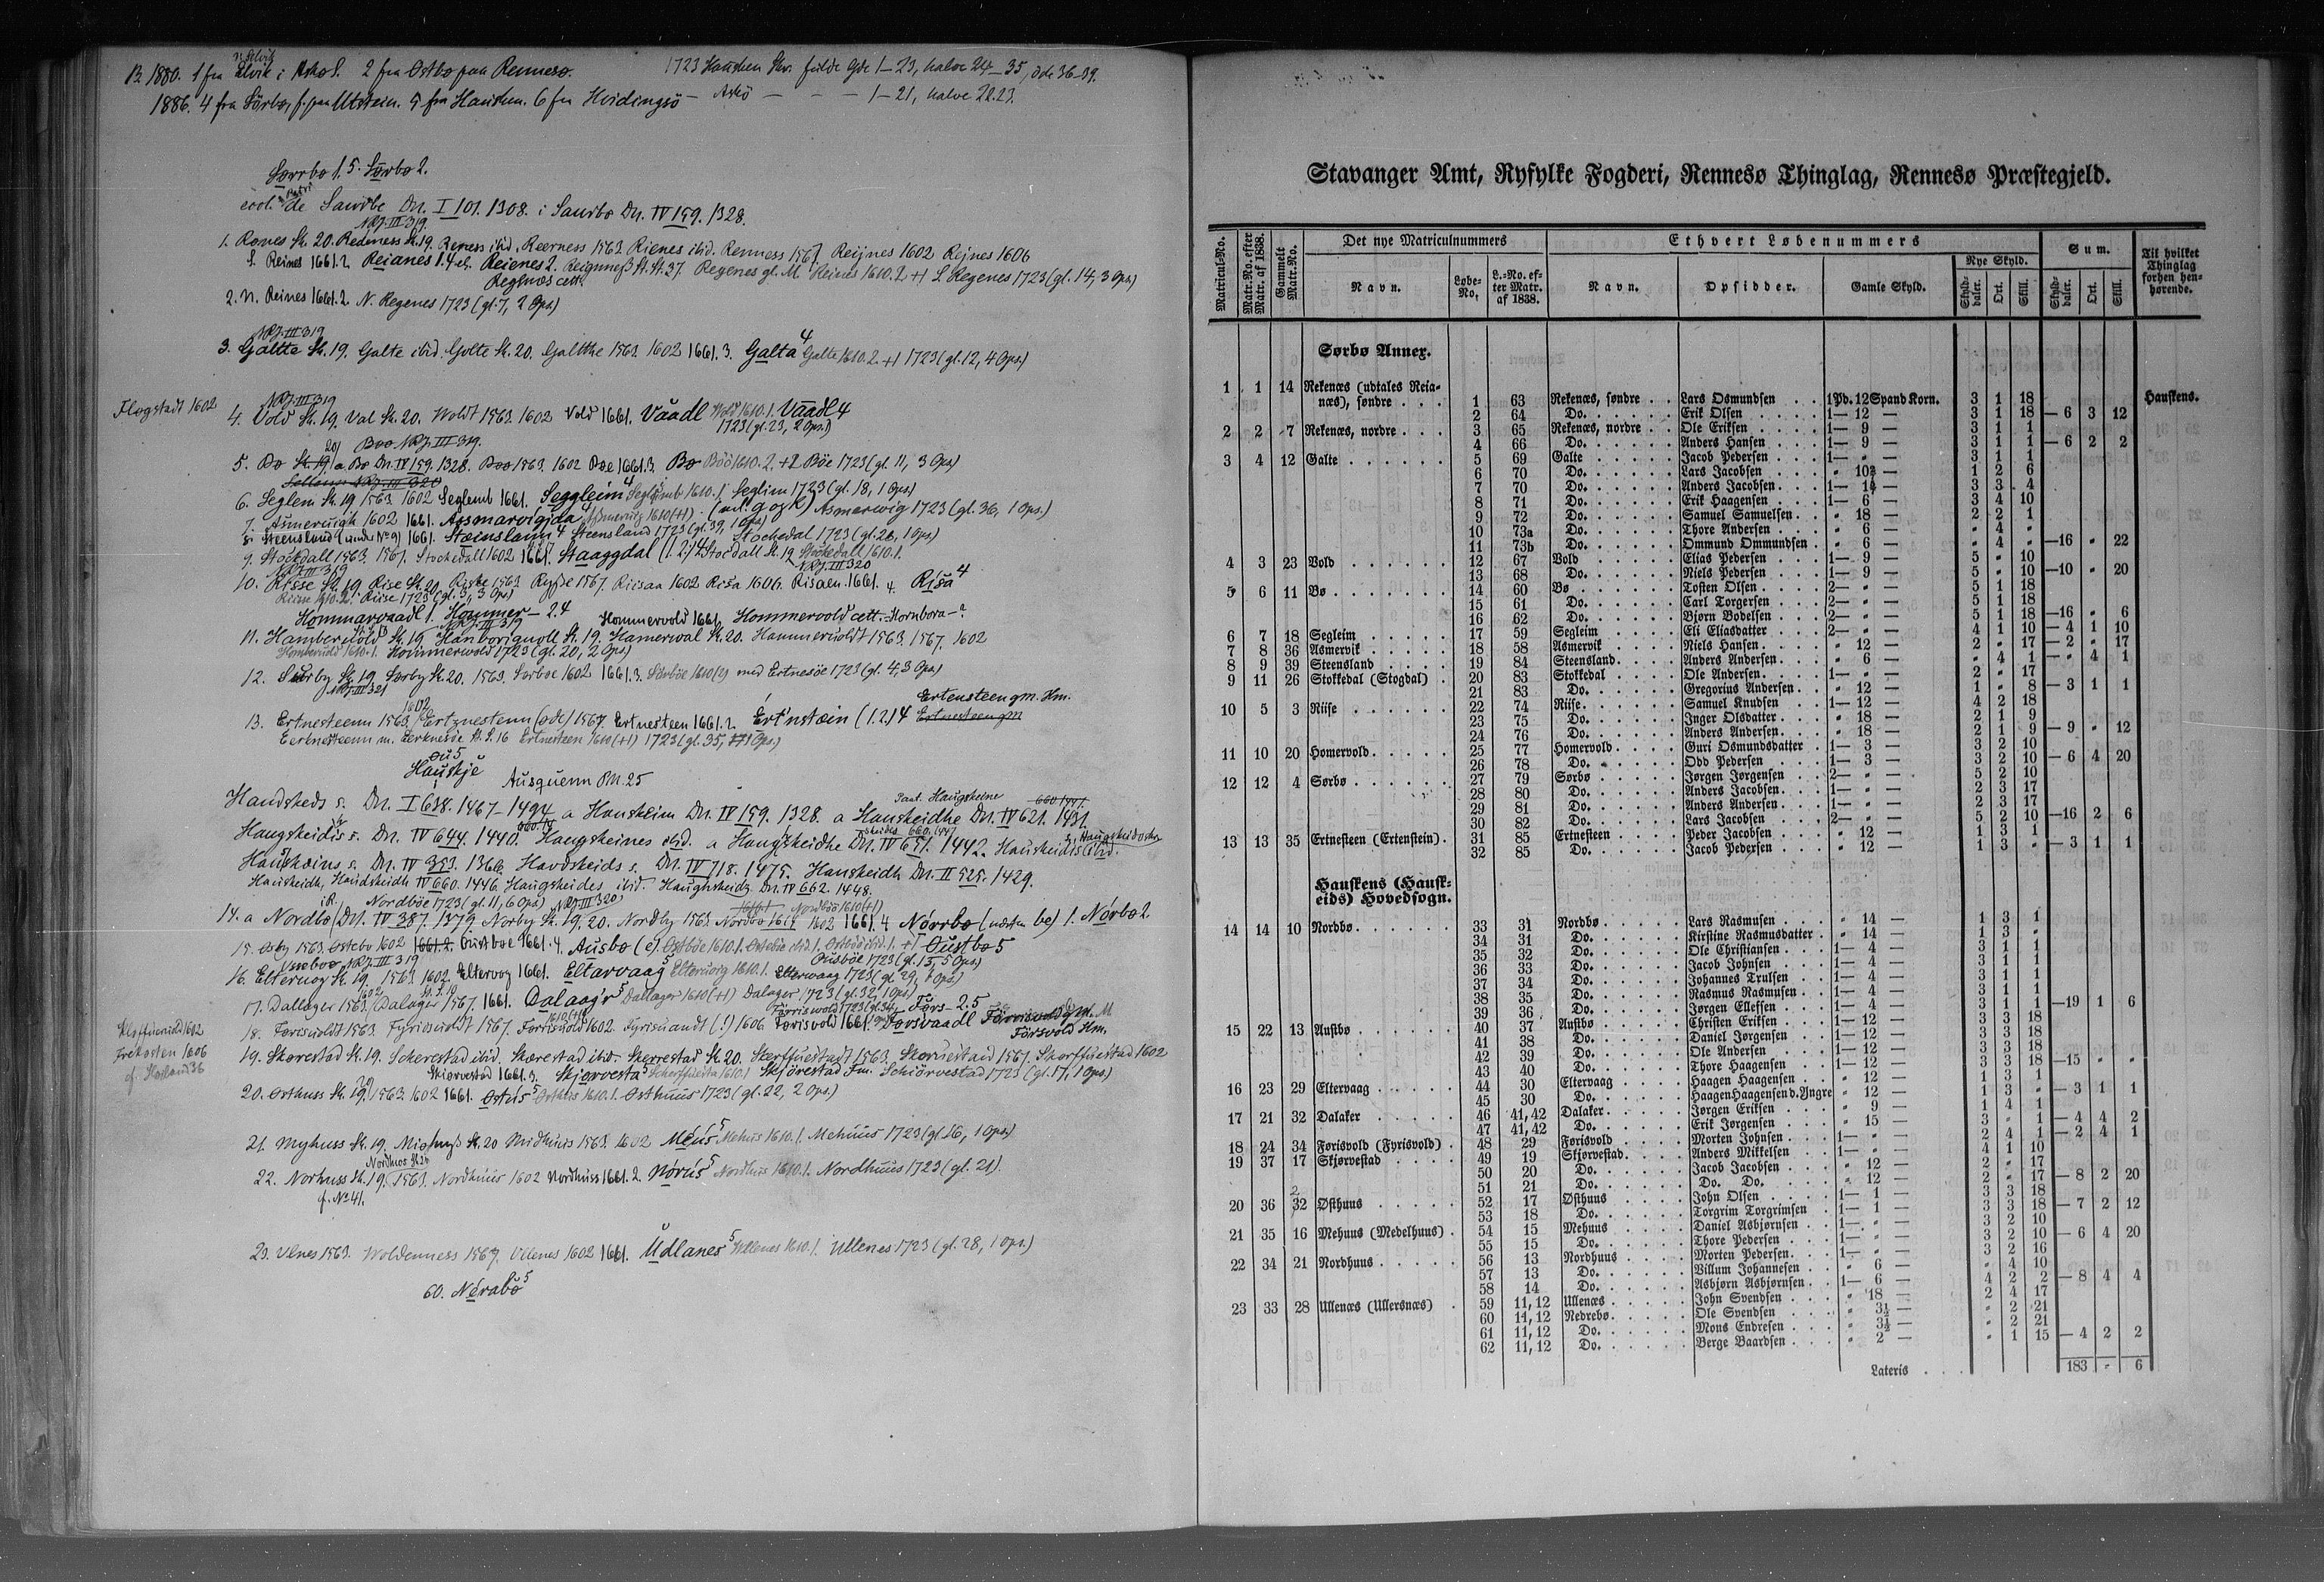 B. 1880. 1 fra Elvik i Askø S. 2 fra Østbø paa Rennesø.
1723 Hausken Skr. fulde Gde 1–23, halve 24–35, øde 36–39.
1886. 4 fra Sørbø, f. paa Utstein. 5 fra Hausken. 6 fra Hvidingsø
– Askø – – – 1–21, halve 22.23.
Sørrbø 1.5. Sørbø 2.
eccl. de Saurbe Dn. I 101. 1308. i Saurbø Dn. IV 159. 1328.
NRJ. III 319
1. Rønes St. 20. Redeness St. 19. Reness ibid. Reerness 1563. Rienes ibid. Renness 1567 Reijnes 1602 Rejnes 1606
S. Reines 1661.2 Reianes 1.4 Reienes 2. Regenes gl. M. Reines 1610.2 +1 S. Regenes 1723 (gl. 14, 3 Ops)
2. N. Reines 1661.2 N. Regenes 1723 (gl. 7, 2 Ops)
NRJ. III 319
3. Galtte St. 19. Galte ibid. Golte St. 20. Galtthe 1563. 1602 1661.3. Galta 4 Galte 1610.2. +1 1723 (gl. 12, 4 Ops.)
Flogstadt 1602
NRJ. III 319
4. Vold St. 19. Val St. 20. Woldt 1563. 1602 Vold 1661. Vaadl Vold 1610.1. Vaadl 4
1723 (gl. 23, 2 Ops.)
Boo NRJ. III 319.
5. Bø St. 19 a Bø Dn. IV 159. 1328. Boo 1563. 1602 Boe 1661.3. Bø Böö 1610.2. +2 Böe 1723 (gl. 11, 3 Ops)
6. Seglem St. 19 1563. 1602 Seglemb 1661. Seggleim 4 Seglemb 1610.1 Seglim 1723 (gl. 18, 1 Ops)
7. Asmeruigh 1602 1661. Assmarvigjda 4 Asmerwig 1723 (gl. 36, 1 Ops.)
8. Steensland (under No 9) 1661. Stæinslann 4 Steensland 1723 (gl. 39, 1 Ops)
9. Stockdall 1563. 1567. Stockedall 1602 1661. Staaggdal (1.2) 4 Stocdall St. 19 Stockedall 1610.1. Stockedal 1723 (gl. 26, 1 Ops)
NRJ. III 319
NRJ. III 320
10. Risse St. 19. Rise St. 20. Riske 1563. Rysse 1567. Riisaa 1602 Risa 1606. Risaen 1661. 4. Risa 4
Riise 1610.2. Riise 1723 (gl. 3, 3 Ops)
Hommarvaadl 1. Hommer– 2.4 Hommervold 1661 Hommervold cett. Hornbora–?
NRJ. III 319
11. Hamberuold St. 19 Hanborignoll St. 19. Hamerwal St. 20. Hammeruoldt 1563. 1567. 1602
Homberuold 1610.1. Hommerwold 1723 (gl. 20, 2 Ops)
12. Sørby St. 19 Sørby St. 20. 1563. Sørboe 1602 1661.3. Sörböe 1610 (2) med Ertnesöe 1723 (gl. 4, 3 Ops)
NRJ. III 321
Ertensteen gm. Hm.
13. Ertnesteenn 1563. 1602 Ertznestenn (øde) 1567 Ertnesteen 1661.2. Ert'nstæin (1.2) 4
Eertnesteenn m. Eerknesöe St. S. 16 Ertnesteen 1610 (+1) 1723 (gl. 35, 1 Ops.)
Hauskje
Ausquenn PM. 25
Handsheds s. Dn. I 638. 1467–1494 a Hauskeim Dn. IV 159. 1328. a Hauskeidhe Dn. IV 621. 1431.
Haugskeidis s. Dn. IV 644. 1440. Haugsheines ibid. a Haugskeidhe Dn. IV 651. 1442. Hauskeidis ibid.
Hauskæins s. Dn. IV 353. 1366. Havdskeids s. Dn. IV 718. 1475. Hauskeidh Dn. II 525. 1429.
Hauskeidh, Haudskeidh IV 660. 1446. Haugskeides ibid. Haughskeidz Dn. IV 662. 1448.
Nordböe 1723 (gl. 11, 6 Ops) NRJ. III 320
Nordböö 1610 (+1)
14. a Nordbø Dn. IV 387. 1379. Norby St. 19. 20. Nordby 1563. 1602 1661.4 Nørrbø (næsten be) 1. Nørbø 2
15. Osby 1563. Ostebo 1602 Oustboe 1661.4. Ausbø (e) Oustbo 5
NRJ. III 319
Ousböe 1723 (gl. 13, 5 Ops)
16. Elteruog St. 19. 1563. 1602. Eltervog 1661. Eltarvaag 5 Elteruog 1610.1. Elterwaag 1723 (gl. 29, 1 Ops)
17. Dallager 1563. Dalager 1567. 1661. Dalaag'r 5 Dallager 1610 (+1) Dalager 1723 (gl. 32, 1 Ops)
18. Forisuoldt 1563. Fyrisuoldt 1567. Forrisuold 1602. Fyrisuandt (!) 1606 Forisvold 1661. Forsvaadl
Förrisvold 1723 (gl. 34) Förs– 2.5
Försvold Hm.
Frekosten 1606
cf. Hæland 36
19. Skorestad St. 19. Scherestad ibid. Skærestad ibid. Skerrestad St. 20. Skerffuestadt 1563. Skoruestad 1567. Skorffuestad 1602
Skiørvestad 1661.3. Skjørvesta 5 Skjörestad Fm. Schiörvestad 1723 (gl. 17, 1 Ops)
20. Osthuss St. 19. 1563. 1602 1661. Ostus 5 Osthus 1610.1. Osthuus 1723 (gl. 22, 2 Ops.)
21. Myhuss St. 19. Miohuss St. 20 Midhuus 1563. 1602 Meus 5 Mehus 1610.1. Mehuus 1723 (gl. 16, 1 Ops)
Nordhuos St. 20
22. Norhuss St. 19. 1563. Nordhuus 1602 Nordhuss 1661.2. Nørus 5 Nordhus 1610.1. Nordhuus 1723 (gl. 21).
cf. No 41.
23. Vlnes 1563. Woldenness 1567. Ullenes 1602 1661. Udlanes 5 Ullenes 1610.1. Ullenes 1723 (gl. 28, 1 Ops.)
60. Nérabø 5
Stavanger Amt, Ryfylke Fogderi, Rennesø Thinglag, Rennesø Præstegjeld.
Matricul-No. | Matr.-No. efter Matr. af 1838. | Gammelt Matr.-No. | Det nye Matriculnummers | Ethvert Løbenummers | Sum. | Til hvilket Thinglag forhen henhørende.
Navn. | Løbe-No. | L.-No. efter Matr. af 1838. | Navn. | Opsidder. | Gamle Skyld. | Nye Skyld. | Skylddaler. | Ort. | Skill. | Skylddaler. | Ort. | Skill.
Sørbø Annex.
1 1 14 Rekenæs (udtales Reia-
næs), søndre . . . 1 63 Rekenæs, søndre . . Lars Osmundsen . . 1Pd. 12 Spand Korn. 3 1 18 Hauskens.
2 64 Do. Erik Olsen 1— 12 — 3 1 18 — 6 3 12
2 2 7 Rekenæs, nordre . . . 3 65 Rekenæs, nordre . . Ole Eriksen 1— 9 — 3 1 1
4 66 Do. Anders Hansen 1— 9 — 3 1 1 — 6 2 2
3 4 12 Galte 5 69 Galte Jacob Pedersen 1— " — 3 1 1
6 70 Do. Lars Jacobsen " 10 — 1 2 6
7 70 Do. Anders Jacobsen 1— 1 — 3 3 4
8 71 Do. Erik Haagensen 1— 6 — 3 4 10
9 72 Do. Samuel Samuelsen " 18 — 2 2 1
10 73a Do. Thore Andersen " 6 — " 4 "
11 73b Do. Ommund Ommundsen " 6 — " 4 " —16 " 22
4 3 23 Vold 12 67 Vold Elias Pedersen 1— 9 — 5 " 10
13 68 Do. Niels Pedersen 1— 9 — 5 " 10 —10 " 20
5 6 11 Bø 14 60 Bø Tosten Olsen 2— " — 5 1 18
15 61 Do. Carl Torgersen 2— " — 5 1 18
16 62 Do. Bjørn Bodelsen 2— " — 5 1 18 —16 " 6
6 7 18 Segleim 17 59 Segleim Eli Eliasdatter 2— " — 4 1 10 — 4 1 10
7 8 36 Asmervik 18 58 Asmervik Niels Hansen " 12 — 2 " 17 — 2 " 17
8 9 39 Steensland 19 84 Steensland Anders Andersen " 6 — " 4 1 — " 4 1
9 11 26 Stokkedal (Stogdal) 20 83 Stokkedal Ole Andersen 1— " — 2 " 17
21 83 Do. Gregorius Andersen " 12 — 1 " 8 — 3 1 1
10 5 3 Riise 22 74 Riise Samuel Knudsen 1— 12 — 4 2 18
23 75 Do. Inger Olsdatter " 18 — 2 1 9
24 76 Do. Anders Andersen " 18 — 2 1 9 — 9 " 12
11 10 20 Homervold 25 77 Homervold Guri Osmundsdatter 1— 3 — 3 2 10
26 78 Do. Odd Pedersen 1— 3 — 3 2 10 — 6 4 20
12 12 4 Sørbø 27 79 Sørbø Jørgen Jørgensen 2— " — 5 2 10
28 80 Do. Anders Jacobsen 1— " — 2 3 17
29 81 Do. Anders Andersen 1— " — 2 3 17
30 82 Do. Lars Jacobsen 2— " — 5 2 10 —16 2 6
13 13 35 Ertnesteen (Ertenstein) 31 85 Ertnesteen Peder Jacobsen " 12 — 1 3 1
32 85 Do. Jacob Pedersen " 12 — 1 3 " — 3 1 1
Hauskens (Hausk-
eids) Hovedsogn.
14 14 10 Nordbø 33 31 Nordbø Lars Rasmusen " 14 — 1 3 1
34 31 Do. Kirstine Rasmusdatter " 14 — 1 3 "
35 32 Do. Ole Christiansen 1— 4 — 3 1 1
36 33 Do. Jacob Johnsen 1— 4 — 3 1 1
37 34 Do. Johannes Trulsen 1— 4 — 3 1 1
38 35 Do. Rasmus Rasmusen 1— 4 — 3 1 1
39 36 Do. Jørgen Ellefsen 1— 4 — 3 1 1 —19 1 6
15 22 13 Austbø 40 37 Austbø Christen Eriksen 1— 12 — 3 3 18
41 38 Do. Daniel Jørgensen 1— 12 — 3 3 18
42 39 Do. Ole Andersen 1— 12 — 3 3 18
43 40 Do. Thore Haagensen 1— 12 — 3 3 18 —15 " "
16 23 29 Eltervaag 44 30 Eltervaag Haagen Haagensen " 12 — 1 3 1
45 30 Do. Haagen Haagensen d. Yngre " 12 — 1 3 " — 3 1 1
17 21 32 Dalaker 46 41, 42 Dalaker Jørgen Eriksen " 9 — 1 4 1
47 41, 42 Do. Erik Jørgensen " 15 — 3 " 1 — 4 4 2
18 24 34 Førisvold (Fyrisvold) 48 29 Førisvold Morten Johnsen 1— " — 2 4 1 — 2 4 1
19 37 17 Skjørvestad 49 19 Skjørvestad Anders Mikkelsen 1— " — 4 1 10
50 20 Do. Jacob Jacobsen " 12 — 2 " 17
51 21 Do. Do. Do. " 12 — 2 " 17 — 8 2 20
20 36 32 Østhuus 52 17 Østhuus John Olsen 1— 1 — 3 3 18
53 18 Do. Torgrim Torgrimsen 1— 1 — 3 3 18 — 7 2 12
21 35 16 Mehuus (Medelhuus) 54 15 Mehuus Daniel Asbjørnsen 1— " — 3 2 10
55 15 Do. Thore Pedersen 1— " — 3 2 10 — 6 4 20
22 34 21 Nordhuus 56 13 Nordhuus Morten Pedersen 1— " — 3 2 16
57 13 Do. Villum Johannesen " 6 — " 4 10
58 14 Do. Asbjørn Asbjørnsen 1— 6 — 4 2 2 — 8 4 4
23 33 28 Ullenæs (Ullersnæs) 59 11, 12 Ullenæs John Svendsen " 18 — 2 4 17
60 11, 12 Nedrebø Ole Svendsen " 3½ — " 2 21
61 11, 12 Do. Mons Endresen " 3½ — " 2 21
62 11, 12 Do. Berge Baardsen " 2 — " 1 15 — 4 2 2
Lateris . . . 183 " 6